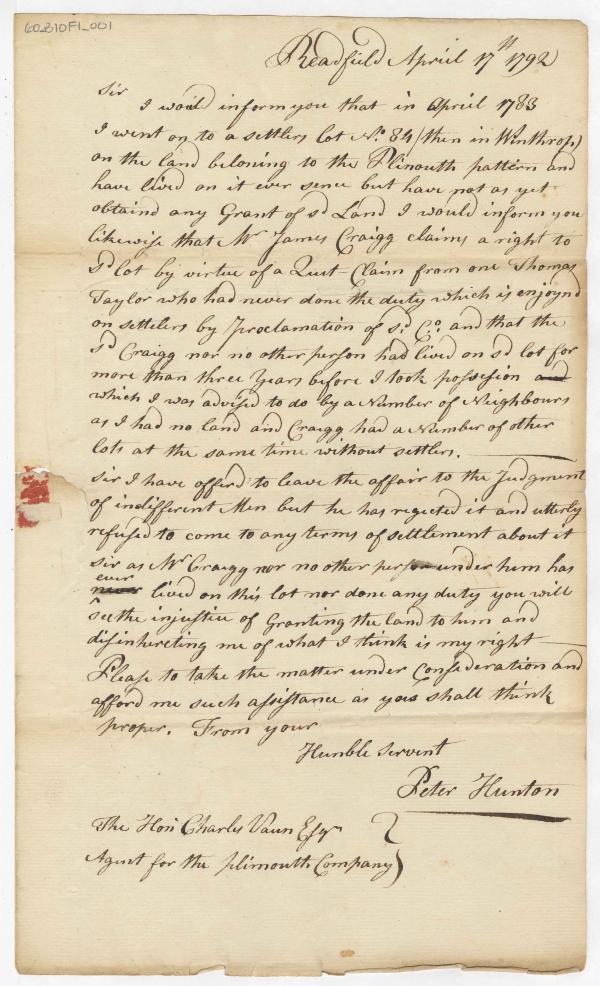 60_B10F1_001
Readfield April 17th 1792
Sir
I would inform you that in April 1783
I went on to a settlers lot No. 84 (then in Winthrop)
on the land beloning to the Plimouth pattern and
have lived on it ever sence but have not as yet
obtaind any Grant of sd Land I would inform you
likewise that Mr James Craigg claims a right to
sd lot by virtue of a Quit-Claim from one Thomas
Taylor who had never done the duty which is enjoynd
on settlers by Proclamation of sd. Co. and that the
sd Craigg nor no other person had lived on sd lot for
more than three years before I took possesion and
which I was advised to do by a Number of Neighbours
as I had no land and Craigg had a Number of other
lots at the same time without settlers.
Sir I have offerd to leave the affair to the Judgment
of indifferent Men but he has regected it and utterly
refused to come to any terms of settlement about it
Sir as Mr Craigg nor no other person under him has
ever
never lived on this lot nor done any duty you will
see the injustice of Granting the land to him and
disinhereting me of what I think is my right
Please to take the matter under Consederation and
afford me such assistance as you shall think
proper. From your
Humble Servent
Peter Hunton
The Hon Charles Vaun Esqr
Agent for the plimouth Company)